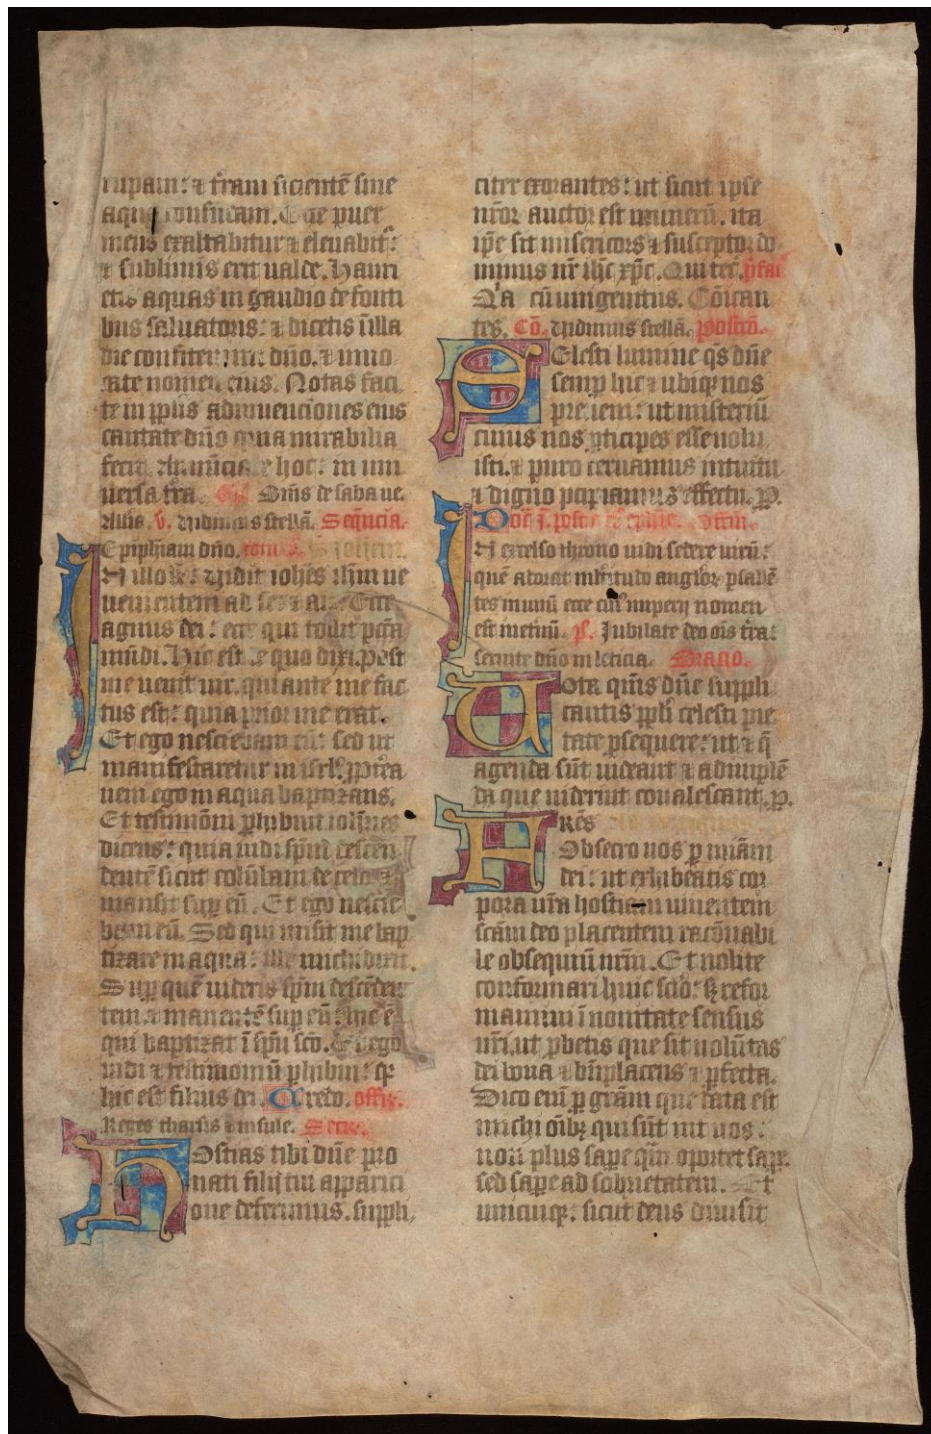 rupam: ⁊ t̄ram sicientē sine
aqua confusam. Ecce puer
meus exaltabitur ⁊ eleuabit᷑:
⁊ sublimis erit ualde. Hauri
etis aquas in gaudio de fonti
bus saluatoris: ⁊ dicetis ī illa
die confitemini dn̄o. ⁊ inuo
cate nomen eius. Notas faci
te in pplis adinuenciones eius
cantate dn̄o quia mirabilia
fecit. Annunciate hoc: in uni
uersa t̄ra. Om̄s de saba ue.
Alla. v. Vidimus stellā. Sequēcia.
Epiphiam dn̄o. Johem.
IN illo: Vidit ioh̄es ih̄m ue
nientem ad se: ⁊ ait. Ecce
agnus dei: ecce qui tollit pcc̄a
mūdi. Hic est de quo dixi. Post
me uenit uir. qui ante me fac
tus est: quia prior me erat.
Et ego nesciebam eū: sed ut
manifestaretur in isrl̄. ppt̄ea
ueni ego in aqua baptizans.
Et testimoniū phibuit ioh̄nes
dicens: quia uidi sp̄m descen
dentē sicut colūbam de celo ⁊
mansit sup eū. Et ego nescie
bam eū. Sed qui misit me bap
tizare in aqua: ille michi dixit.
Sup quē uideris sp̄m descēden
tem ⁊ manentē sup eū: hic ē
qui baptizat ī sp̄u sc̄o. Et ego
uidi ⁊ testimoniū phibui: q
hic est filius dei. Credo. offr.
Reges tharsis ⁊ insule. Secr.
HOstias tibi dn̄e pro
nati filij tui apparici
one deferimus. suppli
citer exorantes: ut sicut ipse
nr̄or auctor est munerū. ita
ipē sit misericors ⁊ susceptor. do
minus nr̄ ih̄c xp̄c. Qui tec̄. p̄fac
Qa cū unigenitus. Cōican
tes. Cō. Vidimus stellā. Postcō.
CElesti lumine qs dn̄e
semp hic ⁊ ubiq nos
preueni: ut misteriū
cuius nos pticipes esse uolu
isti. ⁊ puro cernamus intuitu
⁊ digno pcipiamus effectu. P.
Offm.
IN excelso throno uidi sedere uirū:
quē adorat multitudo anglor psallē
tes in unū ecce cui᷒ imperij nomen
est in et̄nū. ps. Jubilate deo ois t̄ra:
seruite dn̄o in leticia. Oracō.
UOta qm̄s dn̄e suppli
cantis ppli celesti pie
tate psequere: ut ⁊ q̄
agenda sūt uideant ⁊ adimplē
da que uiderint conualescant. P.
FRēs
Obsecro uos p miām
dei: ut exhibeatis cor
pora ur̄a hostiam uiuentem
sc̄am deo placentem racōnabi
le obsequiū ur̄m. Et nolite
conformari huic sc̄lo: s refor
mamini ī nouitate sensus
ur̄i. ut pbetis que sit uolūtas
dei bona ⁊ bn̄placens ⁊ pfecta.
Dico eni p grām que data est
michi oibz qui sūt int̄ uos:
non plus sape qm̄ oportet sape.
sed sape ad sobrietatem. Et
unicuiq: sicut deus diuisit